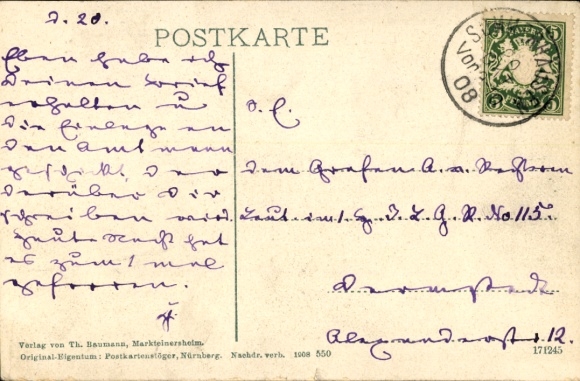 d. 20.
POSTKARTE
Eben habe ich
Deinen Brief
erhalten u
die Einlage an
den Amtmann
geschickt, der
darüber Dir
schreiben wird.
Heute Nacht hat
es zum 1 mal
gefroren.
S. E.
dem Grafen A. v.
Leut im 1. G. I. L. G. R. No 115.
Darmstadt
Alexanderstr. 12.
08
Verlag von Th. Baumann, Markteinersheim.
Original-Eigentum: Postkartenslöger, Nürnberg. Nachdr. verb. 1908 550
171245